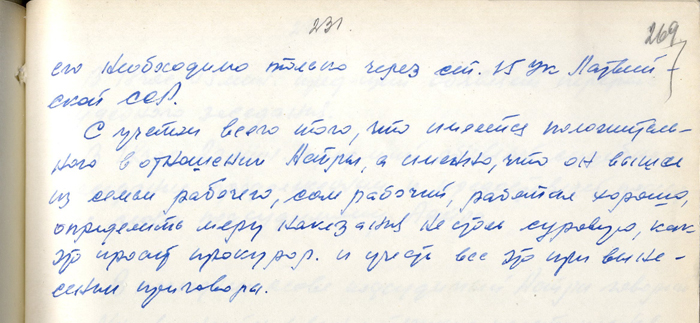 231.
269
его необходимо только через ст. 15 УК Латвий-
ской ССР.
С учетом всего того, что имеется положитель-
ного в отношении Матры, а именно, что он вышел
из семьи рабочего, сам рабочий, работал хорошо,
определить меру наказания не столь суровую, как
это просит прокурор. и учесть все это при выне-
сении приговора.